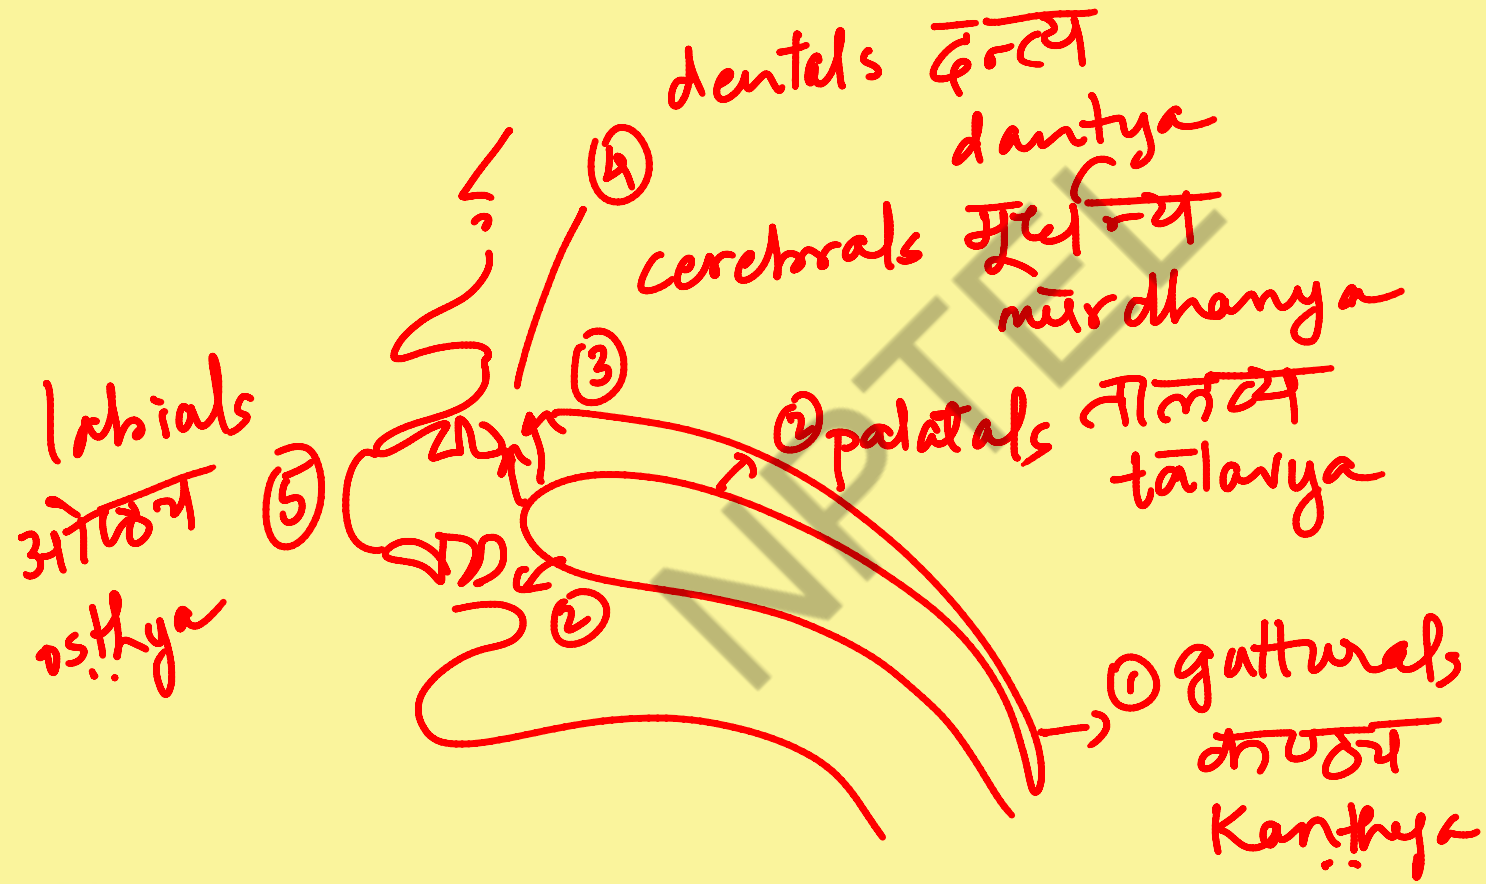 dentals दन्त्य
dantya
④
cerebrals मूर्धन्य
mūrdhanya
③
② palatals तालव्य
tālavya
labials
ओष्ठ्य
oṣṭhya
⑤
②
① gutturals
कण्ठ्य
Kaṇṭhya
NPTEL